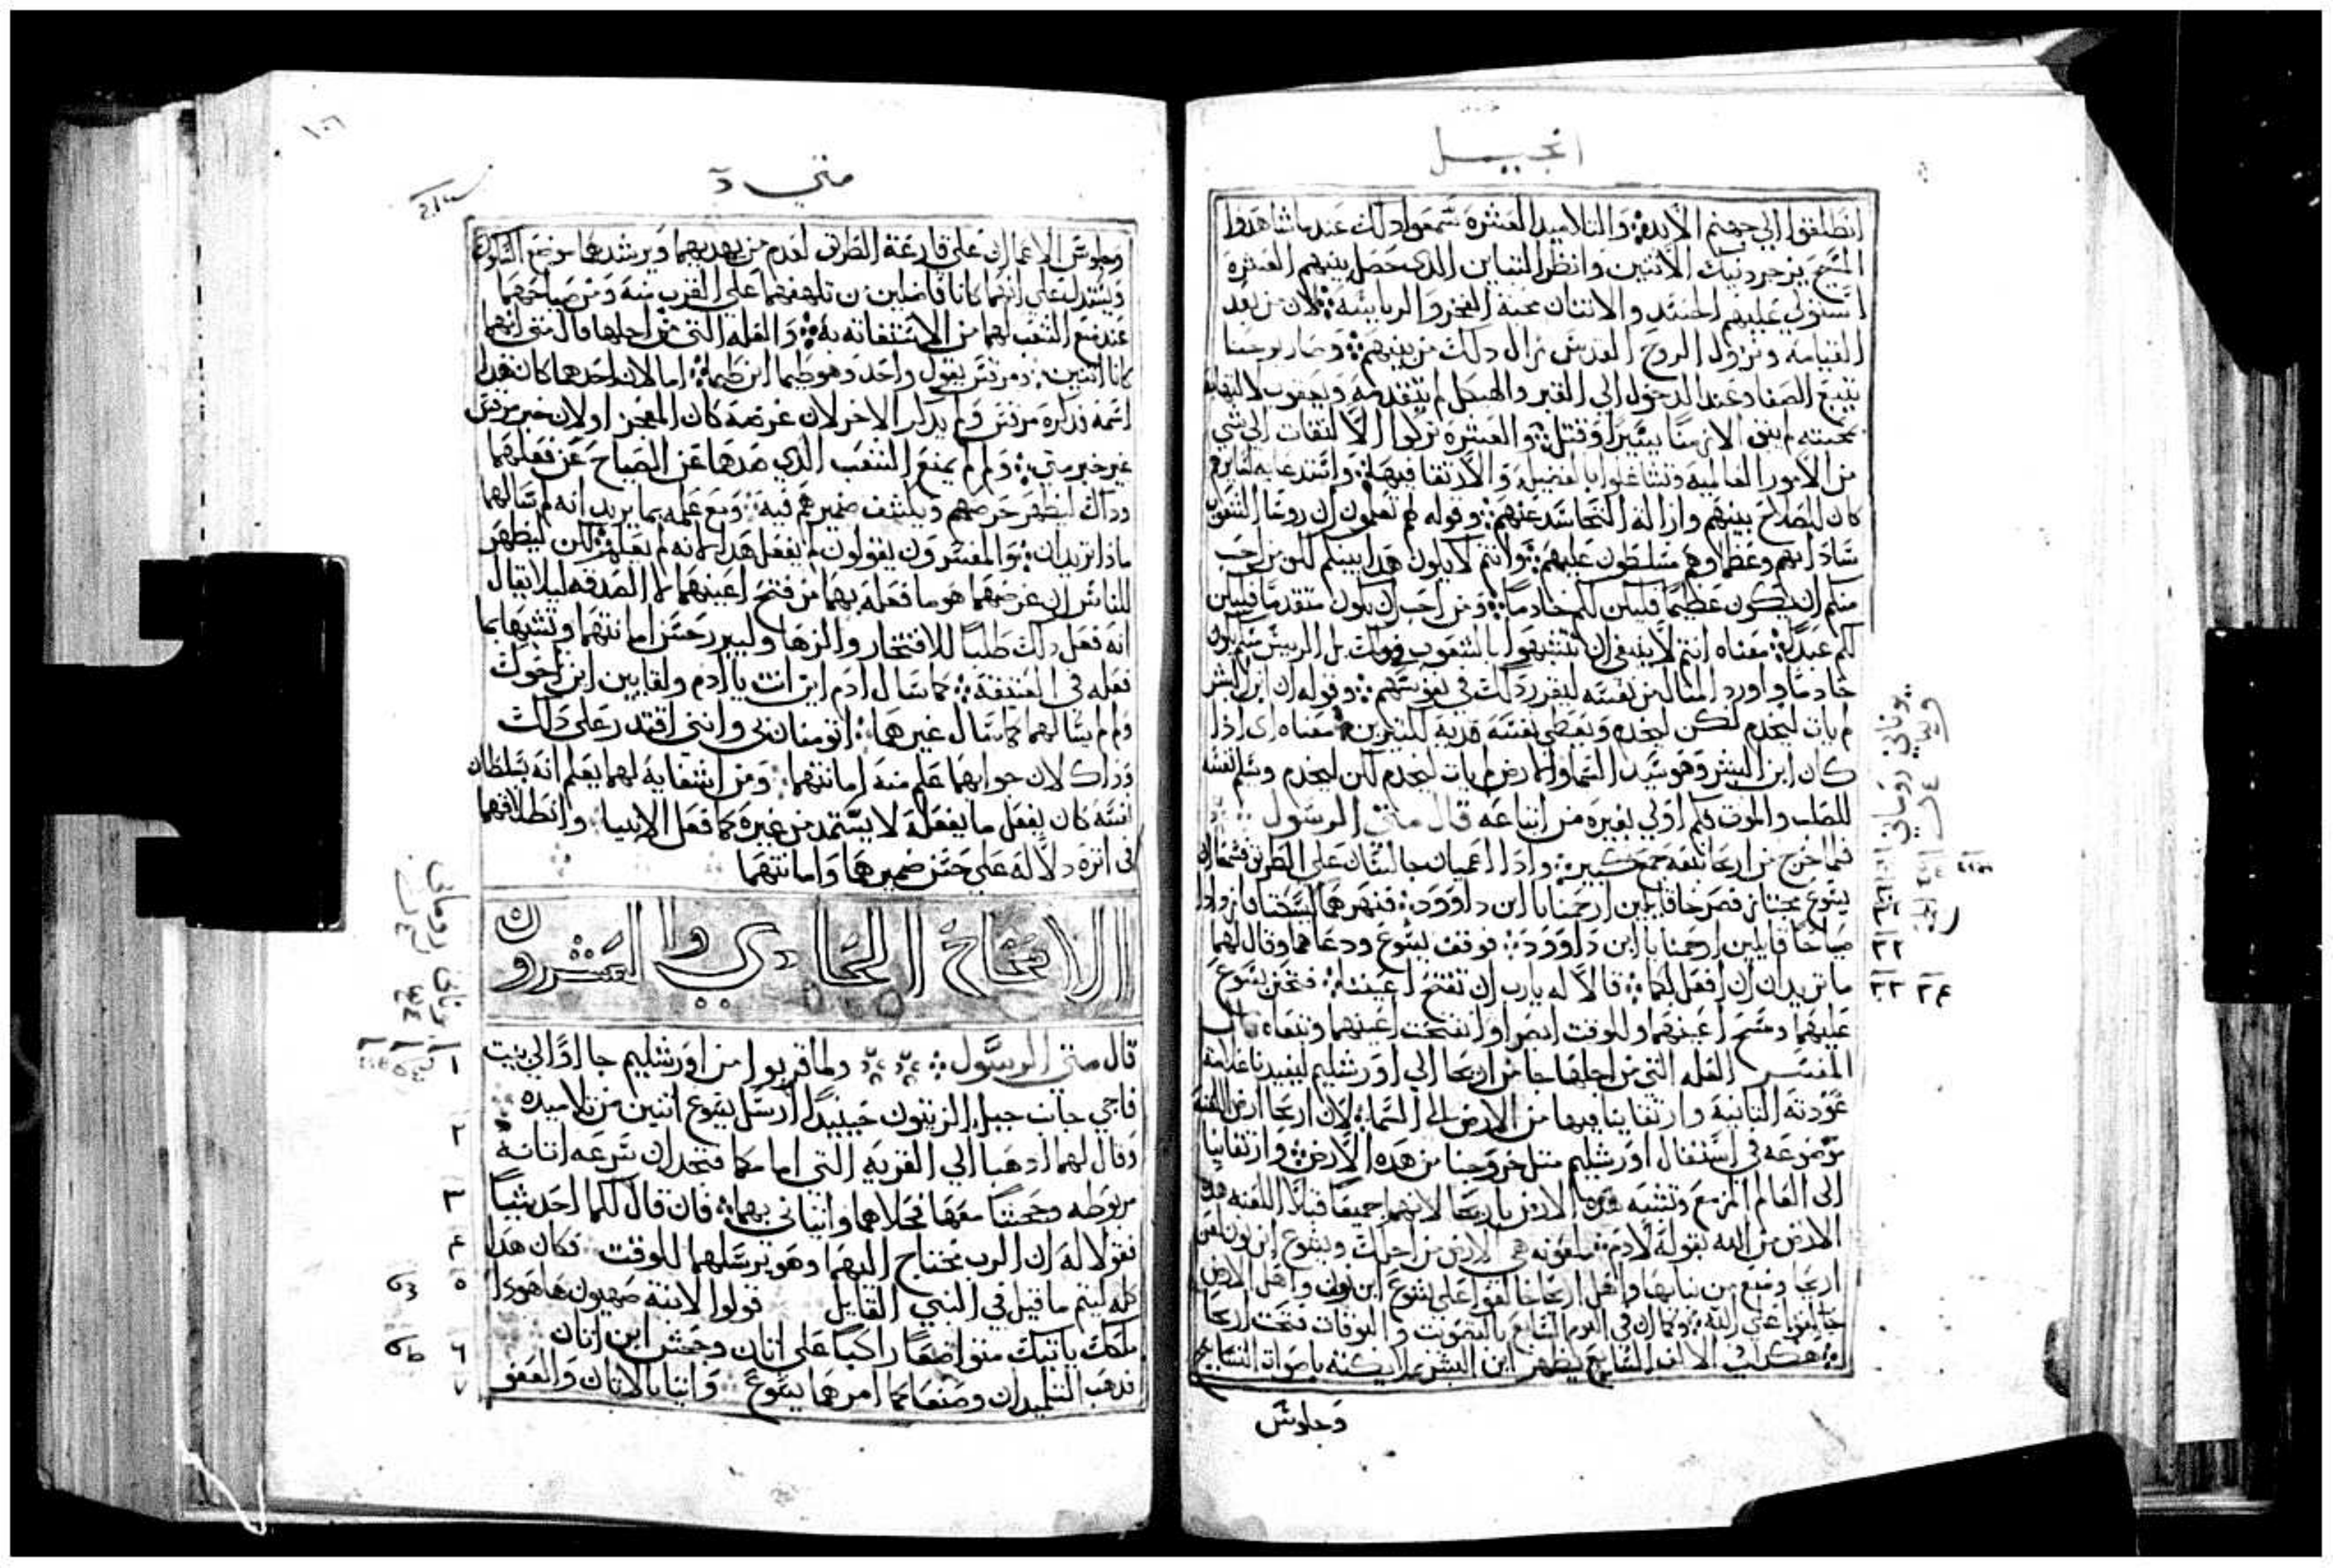 انجيل
انطلقوا الي جهنم الابدية والتلاميد العشرة سمعوا دلك عندما شاهدوا
المسيح يزجر دنيك الاثنين وانظر التباين الدي حصل بينهم العشرة
استولي عليهم الحسد والاثنان محبة الفخر والرياسة لان من بعد
القيامة ونزول الروح القدس زال دلك من بينهم وصار يوحنا
يتبع الصفا وعند الدخول الي القبر والهيكل لم يتقدمه ويعقوب
بمحبته لم يبق الا زمنا يسيرا وقتل والعشرة تركوا الالتفات الي شي
من الامور العالمية وتشاغلوا بالفضيلة والارتقا فيها
كان ليصلح بينهم وازالة التحاسد عنهم وقوله لهم تعلمون ان روسا الشعوب
ساداتهم وعظماوهم مسلطون عليهم وانتم لا يكون هدا بينكم لكن من احب
منكم ان يكون عظيما فليكن لكم خادما ومن احب ان يكون متقدما فليكن
لكم عبدا معناه انتم لا ينبغي ان تتشبهوا بالشعوب
خادما واورد المثال من نفسه ليقرر دلك في نفوسهم وقوله ان ابن البشر
لم يات ليخدم لكن ليخدم ويعطي نفسه فدية للكثيرين معناه اي ادا
كان ابن البشر وهو سيد السما والارض لم يات ليخدم لكن ليخدم ويسلم نفسه
للصلب والموت فكم اولي بغيره من اتباعه قال متي الرسول
فلما خرج من اريحا تبعه جمع كبير وادا اعميان جالسان علي الطريق فسمعا ان
يسوع مجتاز فصرخا قايلين ارحمنا يا ابن داوود فنهرهما ليسكتا فازدادا
صياحا قايلين ارحمنا يا ابن داوود فوقف يسوع ودعاهما وقال لهما
ما تريدان ان افعل بكما قالا له يارب ان تفتح اعيننا فتحنن يسوع
عليهما ومسح اعينهما وللوقت ابصرا وانفتحت اعينهما وتبعاه قال
المفسر العلة التي من اجلها جا من اريحا الي اورشليم ليفيدنا علامة
عودته الثانية وارتقاينا فيها من الارض الي السما لان اريحا ارض اللعنة
موضوعه في استفال اورشليم مثل خروجنا من هده الارض وارتقاينا
الي العالم المزمع وتشبه هده الارض باريحا لانهما جميعا قبلا اللعنه هده
الارض من الله بقوله لادم ملعونه هي الارض من اجلك ويشوع ابن نون لعن
اريحا ومنع من بنايها واهل اريحا خالفوا علي يشوع ابن نون واهل الارض
خالفوا علي الله وكما ان في اليوم السابع بالتصويت والبوقات فتحت اريحا
هكدي الالف السابع يظهر ابن البشر
وجلوس
يوناني روماني
٢٢
٣٣ ٣٤
١٠٦
متي
وجلوس الاعميان علي قارعة الطرق لعدم من يهديهما ويرشدهما موضع السلوك
ويستدل علي انهما كانا فاضلين من تلهفهما علي القرب منه ومن صياحهما
عند منع الشعب لهما من الاستغاثه به والعلة التي من اجلها قال متي انهما
كانا اثنين ومرقس يقول واحد وهو طيما ابن طيما اما لان احدهما كان هدا
اسمه فدكره مرقس ولم يدكر الاخر لان غرضه كان المعجز او لان خبر مرقس
غير خبر متي ولم لم يمنع الشعب الدي صدهما عن الصياح عن فعلهما
وداك ليظهر حرصهم ويكشف ضميرهم فيه ومع علمه بما يريدانه لم سالهما
مادا تريدان والمفسرون يقولون لم يفعل هدا لانه لم يعلم لكن ليظهر
للناس ان غرضهما هو ما فعله بهما من فتح اعينهما لا الصدقه ليلا يقال
انه فعل دلك طلبا للافتخار والزها وليبرز حسن امانتهما وتشبها بما
فعله في العتيقة كما سال ادم اين انت يا ادم ولقايين اين اخوك
ولم لم يسالهما كما سال غيرهما اتومنان بي وانني اقتدر علي دلك
وداك لان جوابهما علم منه امانتهما ومن اشفايه لهما يعلم انه بسلطان
نفسه كان يفعل ما يفعله لا يستمد من غيره كما فعل الانبيا وانطلاقهما
في اثره دلالة علي حسن ضميرهما وامانتهما
الاصحاح الحادي والعشرون
قال متي الرسول ولما قربوا من اورشليم جااوا الي بيت
فاجي جانب جبل الزيتون حينيدا ارسل يسوع اثنين من تلاميده
وقال لهما ادهبا الي القرية التي امامكما فتجدان بسرعه اتانة
مربوطه وجحشا معها فحلاهما واتياني بهما فان قال لكما احد شيا
فقولا له ان الرب محتاج اليهما وهو يرسلهما للوقت فكان هدا
كله ليتم ما قيل في النبي القايل قولوا لابنة صهيون ها هودا
ملكك ياتيك متواضعا راكبا علي اتان وجحش ابن اتان
فدهب التلميدان وصنعا كما امرهما يسوع واتيا بالاتان والعفو
١
٢
٣
٤
٥
٦
٧